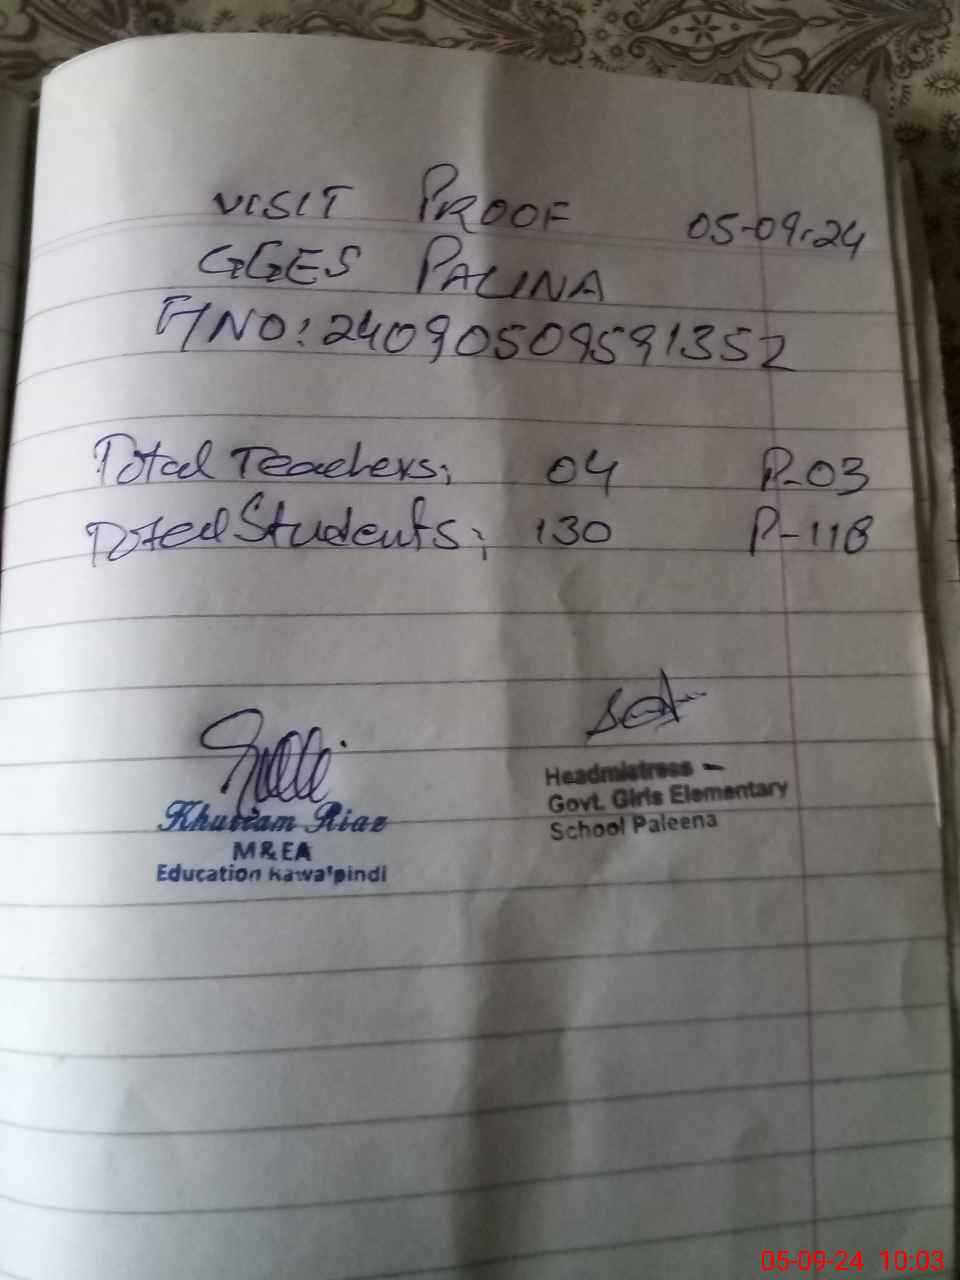 VISIT PROOF 05-09-24
GGES PALINA
F/NO: 24090509591352
Total Teachers: 04 P-03
Total Students: 130 P-118
Khurram Riaz
M&EA
Education Rawalpindi
Headmistress
Govt. Girls Elementary
School Paleena
05-09-24 10:03